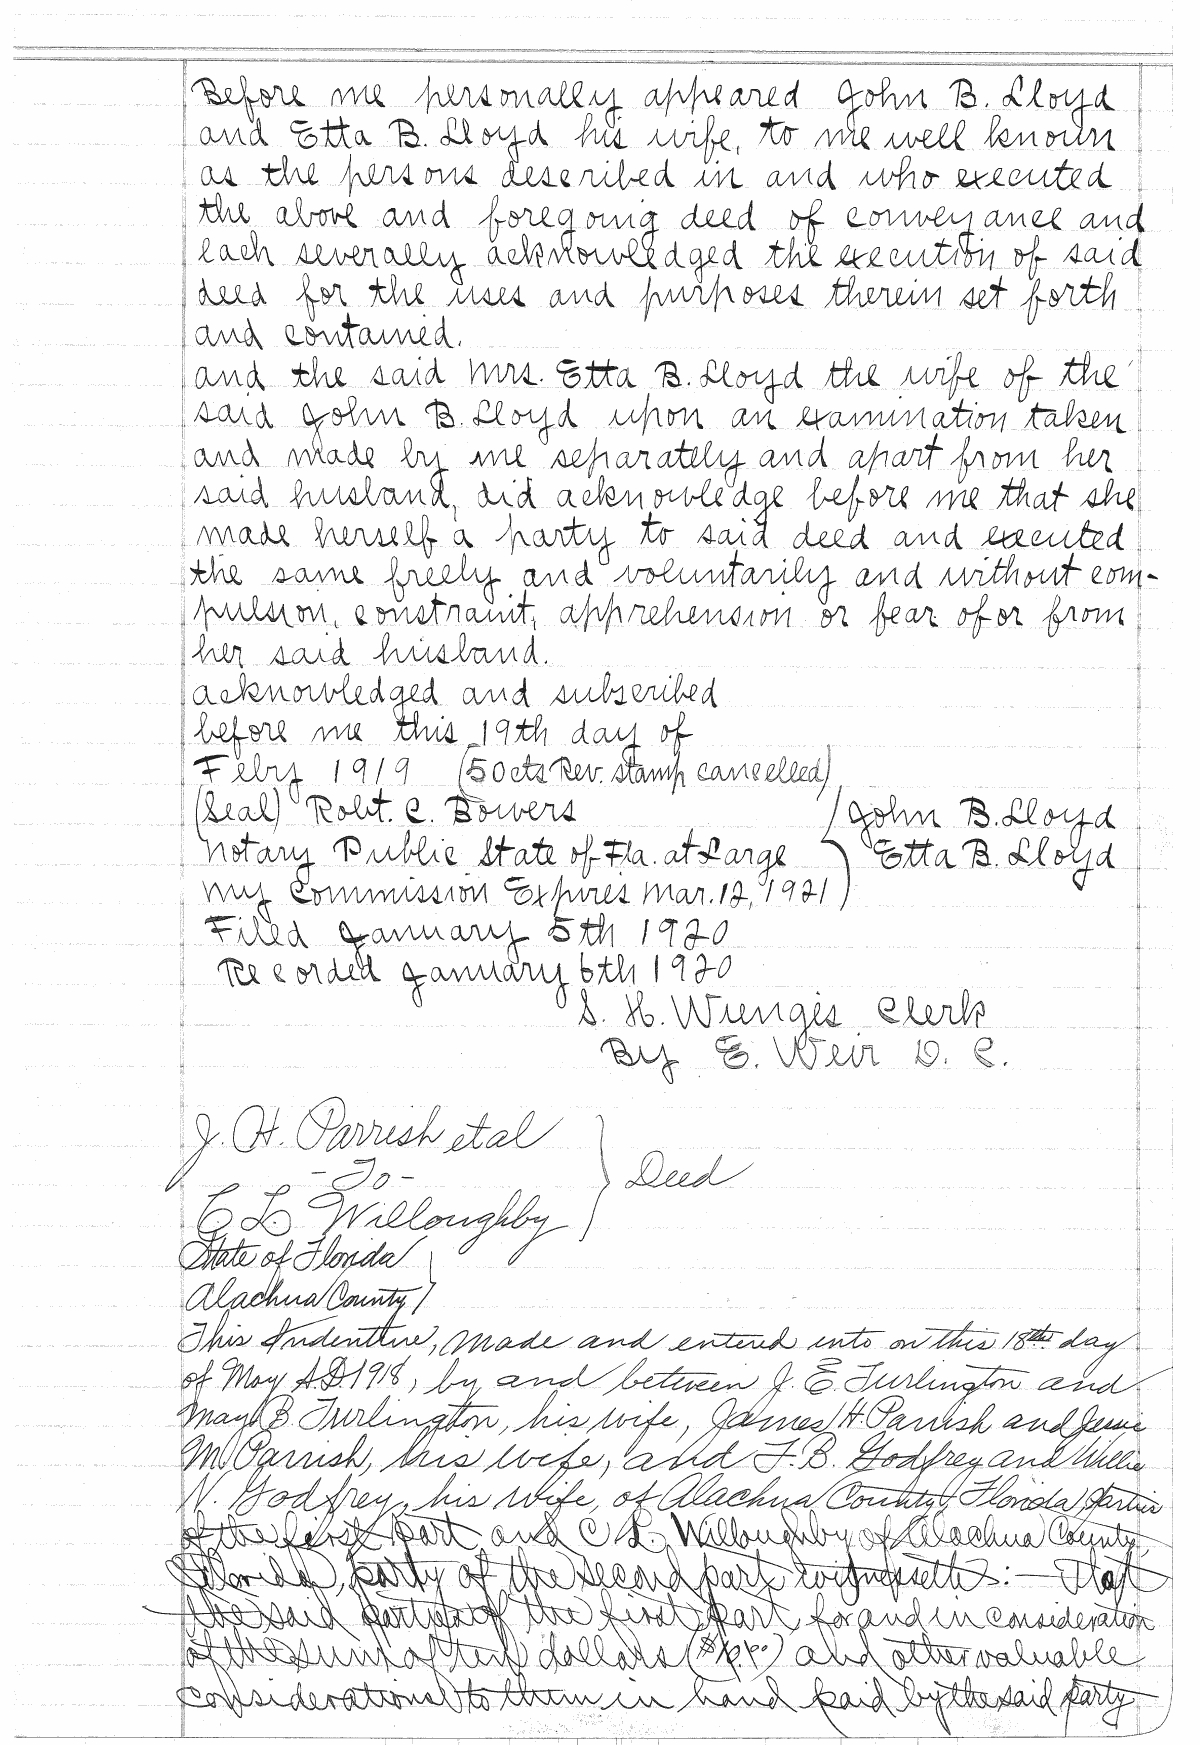 Before me personally appeared John B. Lloyd
and Etta B. Lloyd his wife, to me well known
as the persons described in and who executed
the above and foregoing deed of conveyance and
each severally acknowledged the execution of said
deed for the uses and purposes therein set forth
and contained.
and the said Mrs. Etta B. Lloyd the wife of the
said John B. Lloyd upon an examination taken
and made by me separately and apart from her
said husband, did acknowledge before me that she
made herself a party to said deed and executed
the same freely and voluntarily and without com-
pulsion, constraint, apprehension or fear of or from
her said husband.
acknowledged and subscribed
before me this 19th day of
Feby 1919 (50cts Rev. stamp cancelled)
(Seal) Robt. C. Bowers John B. Lloyd
Notary Public State of Fla. at Large Etta B. Lloyd
My Commission Expires Mar. 12, 1921
Filed January 5th 1920
Recorded January 6th 1920
S. H. Wienges Clerk
By E. Weir D. C.
J. H. Parrish et al
- To - Deed
C L Willoughby
State of Florida
Alachua County
This Indenture, Made and entered into on this 18th day
of May A.D. 1918, by and between J. E. Turlington and
May B. Turlington, his wife, James H. Parrish and Jessie
M. Parrish, his wife, and F. B. Godfrey and Willie
N. Godfrey, his wife, of Alachua County, Florida parties
of the first part and C L. Willoughby of Alachua County,
Florida, party of the second part witnesseth: - That
the said parties of the first part for and in consideration
of the sum of ten dollars and other valuable
considerations to them in hand paid by the said party